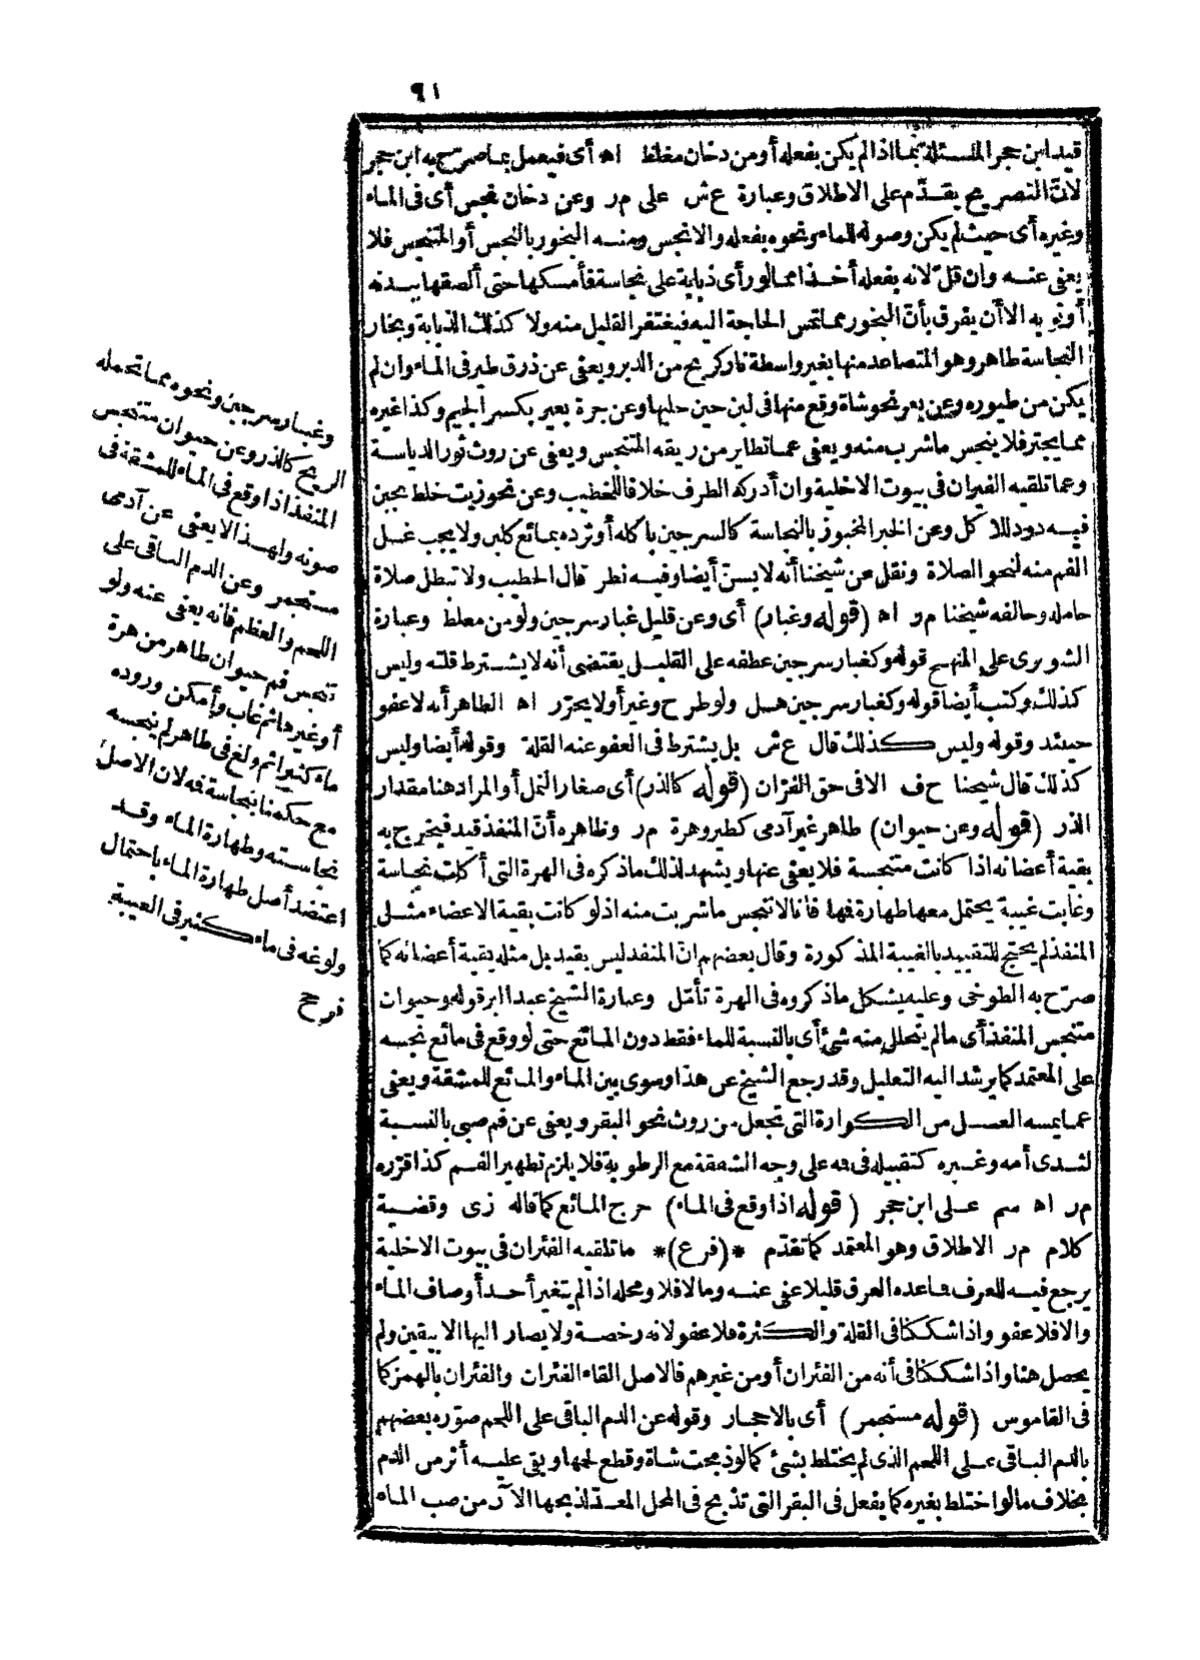 ٩١
قيد ابن حجر المسئلة بما اذا لم يكن بفعله أو من دخان مغلظ اه أى فيعمل بما صرّح به ابن حجر
لانّ التصريح يقدّم على الاطلاق وعبارة ع ش على م ر وعن دخان نجس أى فى الماء
وغيره أى حيث لم يكن وصوله للماء ونحوه بفعله والانجس ومنه البخور بالنجس أو المتنجس فلا
يعفى عنه وان قلّ لانه بفعله أخذا مما لو رأى ذبابة على نجاسة فأمسكها حتى ألصقها ببدنه
أوثوبه الاأن يفرق بأنّ البخور مما تمس الحاجة اليه فيغتفر القليل منه ولا كذلك الذبابة وبخار
النجاسة طاهر وهو المتصاعد منها بغير واسطة نار كريح من الدبر ويعفى عن ذرق طير فى الماء وان لم
يكن من طيوره وعن بعر نحو شاة وقع منها فى لبن حين حلبها وعن جرة بعير بكسر الجيم وكذا غيره
مما يجتر فلا ينجس ما شرب منه ويعفى عما تطاير من ريقه المتنجس ويعفى عن روث ثور الدياسة
وعما تلقيه الفيران فى بيوت الاخلية وان أدركه الطرف خلافا للخطيب وعن نحو زيت خلط بجبن
فيه دود للاكل وعن الخبز المخبوز بالنجاسة كالسرجين بأكله أو ثرده بمائع كلبن ولا يجب غسل
الفم منه لنحو الصلاة ونقل عن شيخنا أنه لا يسنّ أيضا وفيه نظر قال الخطيب ولا تبطل صلاة
حامله وخالفه شيخنا م ر اه (قوله وغبار) أى وعن قليل غبار سرجين ولو من مغلظ وعبارة
الشوبرى على المنهج قوله وكغبار سرجين عطفه على القليل يقتضى أنه لا يشترط قلته وليس
كذلك وكتب أيضا قوله وكغبار سرجين هل ولو طرح وغير أو لا يحرّر اه الظاهر أنه لا عفو
حينئذ وقوله وليس كذلك قال ع ش بل يشترط فى العفو عنه القلة وقوله أيضا وليس
كذلك قال شيخنا ح ف الا فى حق الفرّان (قوله كالذر) أى صغار النمل أو المراد هنا مقدار
الذر (قوله وعن حيوان) طاهر غير آدمى كطير وهرة م ر وظاهره أنّ المنفذ قيد فيخرج به
بقية أعضائه اذا كانت متنجسة فلا يعفى عنها ويشهد لذلك ماذكره فى الهرة التى أكلت نجاسة
وغابت غيبة يحتمل معها طهارة فمها فانا لا ننجس ما شربت منه اذ لو كانت بقية الاعضاء مثل
المنفذ لم يحتج للتقييد بالغيبة المذكورة وقال بعضهم انّ المنفذ ليس بقيد بل مثله بقية أعضائه كما
صرّح به الطوخى وعليه يشكل ماذكروه فى الهرة تأمّل وعبارة الشيخ عبد البر قوله وحيوان
متنجس المنفذ أى مالم يتحلل منه شئ أى بالنسبة للماء فقط دون المائع حتى لو وقع فى مائع نجسه
على المعتمد كما يرشد اليه التعليل وقد رجع الشيخ عن هذا وسوى بين الماء والمائع للمشقة ويعفى
عما يمسه العسل من الكوارة التى تجعل من روث نحو البقر ويعفى عن فم صبى بالنسبة
لثدى أمه وغيره كتقبيله فى فمه على وجه الشفقة مع الرطوبة فلا يلزم تطهير الفم كذا قرّره
م ر اه سم على ابن حجر (قوله اذا وقع فى الماء) خرج المائع كما قاله زى وقضية
كلام م ر الاطلاق وهو المعتمد كما تقدّم *(فرع)* ما تلقيه الفئران فى بيوت الاخلية
يرجع فيه للعرف فما عده العرف قليلا عفى عنه وما لا فلا ومحله اذا لم يتغير أحد أوصاف الماء
والا فلا عفو واذا شككنا فى القلة والكثرة فلا عفو لانه رخصة ولا يصار اليها الا بيقين ولم
يحصل هنا واذا شككنا فى أنه من الفئران أو من غيرهم فالاصل القاء الفئران والفئران بالهمز كما
فى القاموس (قوله مستجمر) أى بالاحجار وقوله عن الدم الباقى على اللحم صوّره بعضهم
بالدم الباقى على اللحم الذى لم يختلط بشئ كما لو ذبحت شاة وقطع لحمها وبقى عليه أثر من الدم
بخلاف مالو اختلط بغيره كما يفعل فى البقر التى تذبح فى المحل المعدّ لذبحها الآن من صب الماء
وغبار سرجين ونحوه مما تحمله
الريح كالذر وعن حيوان متنجس
المنفذ اذا وقع فى الماء للمشقة فى
صونه ولهذا لا يعفى عن آدمى
مستجمر وعن الدم الباقى على
اللحم والعظم فانه يعفى عنه ولو
تنجس فم حيوان طاهر من هرة
أو غيرها ثم غاب وأمكن وروده
ماء كثيرا ثم ولغ فى طاهر لم ينجسه
مع حكمنا بنجاسة فمه لان الاصل
نجاسته وطهارة الماء وقد
اعتضد أصل طهارة الماء باحتمال
ولوغه فى ماء كثير فى الغيبة
فرجح